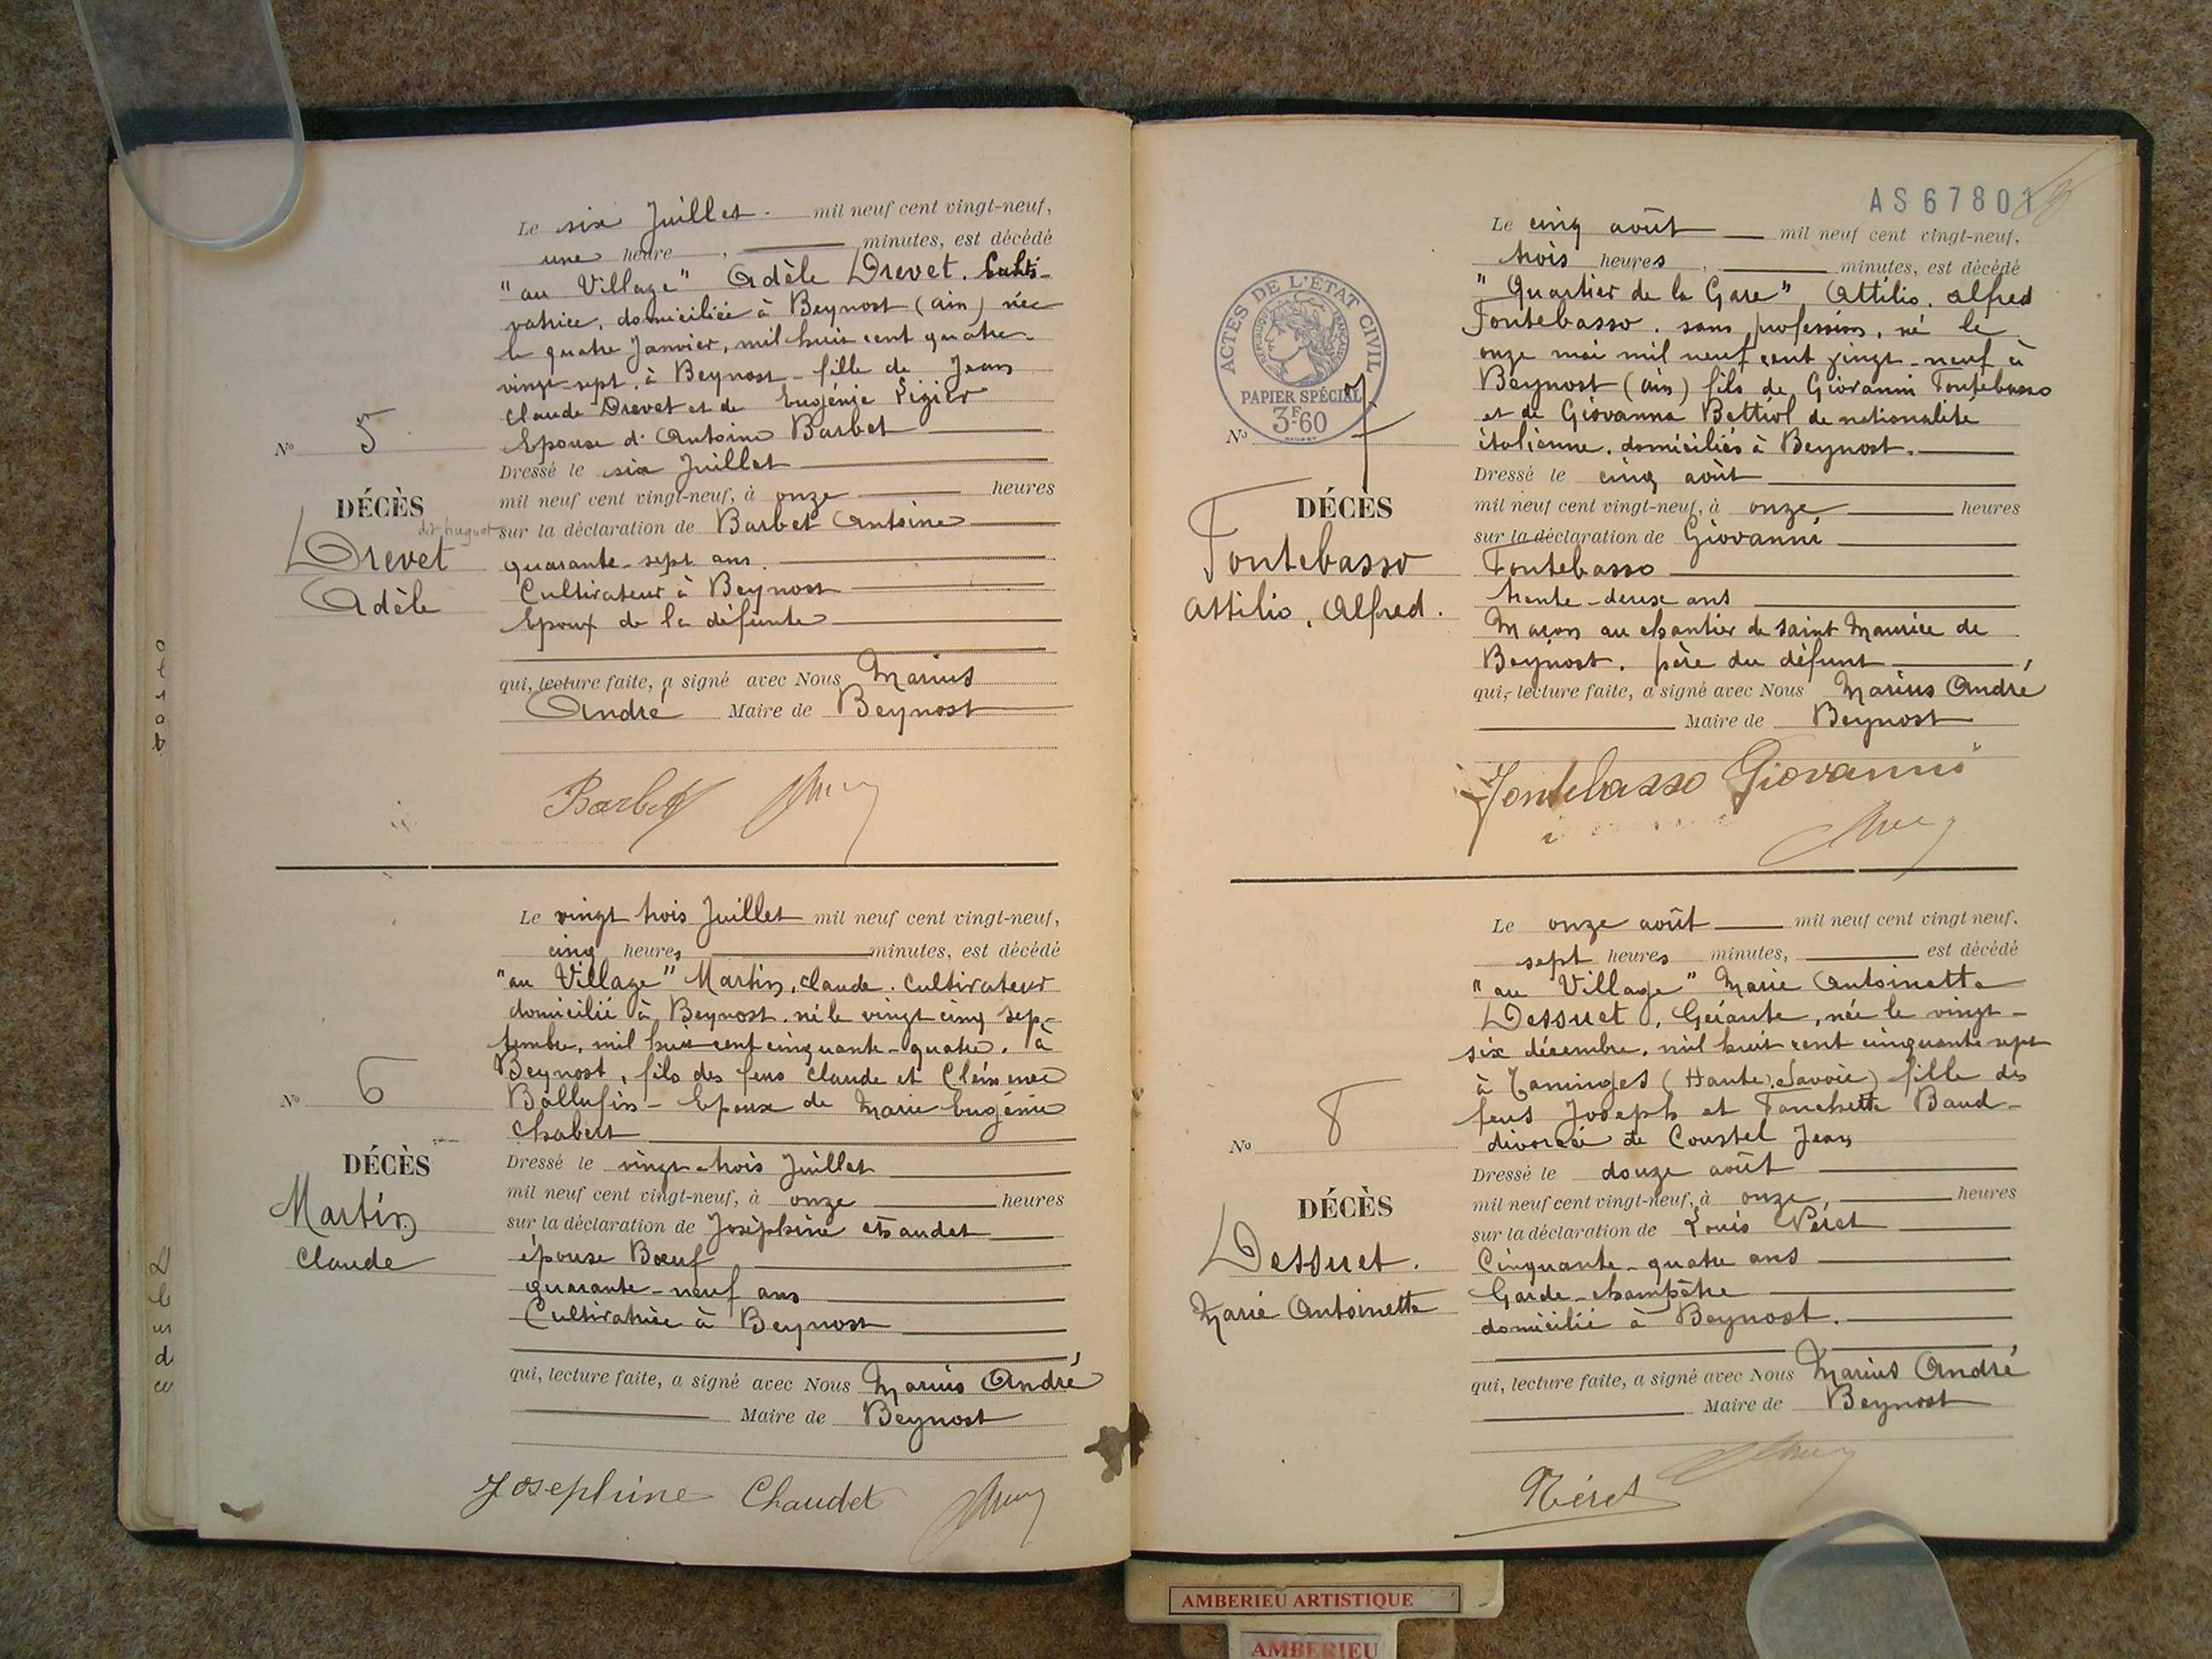 Le six Juillet mil neuf cent vingt-neuf,
une heure, minutes, est décédé
"au Village" Adèle Drevet. Culti-
vatrice, domiciliée à Beynost (Ain) née
le quatre Janvier, mil huit cent quatre-
vingt sept, à Beynost - fille de Jean
Claude Drevet et de Eugénie Ligier
Epouse d'Antoine Barbet
Nº 5
Dressé le six Juillet
mil neuf cent vingt-neuf, à onze heures
DÉCÈS
dit huguet
Drevet
Adèle
sur la déclaration de Barbet Antoine
quarante-sept ans.
Cultivateur à Beynost
Epoux de la défunte
qui, lecture faite, a signé avec Nous Marius
André Maire de Beynost
Barbet
Le vingt trois Juillet mil neuf cent vingt-neuf,
cinq heures minutes, est décédé
"au Village" Martin, Claude. Cultivateur
domicilié à Beynost. né le vingt cinq sep-
tembre, mil huit cent cinquante-quatre. à
Beynost, fils des feus Claude et Clémence
Ballufin - Epoux de Marie Eugénie
Chabert
Nº 6
DÉCÈS
Martin
Claude
Dressé le vingt-trois Juillet
mil neuf cent vingt-neuf, à onze heures
sur la déclaration de Joséphine Chaudet
épouse Bœuf
quarante-neuf ans
Cultivatrice à Beynost
qui, lecture faite, a signé avec Nous Marius André
Maire de Beynost
Josephine Chaudet
AS67801
ACTES DE L'ÉTAT CIVIL
RÉPUBLIQUE FRANÇAISE
PAPIER SPÉCIAL
3F60
Le cinq août mil neuf cent vingt-neuf,
trois heures, minutes, est décédé
"Quartier de la Gare" Attilio, Alfred
Fontebasso. sans profession, né le
onze mai mil neuf cent vingt-neuf à
Beynost (Ain) fils de Giovanni Fontebasso
et de Giovanna Bettiol de nationalité
italienne, domiciliés à Beynost.
Nº 7
DÉCÈS
Fontebasso
Attilio, Alfred.
Dressé le cinq août
mil neuf cent vingt-neuf, à onze heures
sur la déclaration de Giovanni
Fontebasso
trente-deux ans
Maçon au chantier de Saint Maurice de
Beynost. père du défunt,
qui, lecture faite, a signé avec Nous Marius André
Maire de Beynost
Fontebasso Giovanni
Le onze août mil neuf cent vingt neuf,
sept heures minutes, est décédé
"au Village" Marie Antoinette
Dessuet, Gérante, née le vingt-
six décembre, mil huit cent cinquante sept
à Taninges (Haute Savoie) fille des
feus Joseph et Fanchette Baud-
divorcée de Coustel Jean
Nº 8
DÉCÈS
Dessuet.
Marie Antoinette
Dressé le douze août
mil neuf cent vingt-neuf, à onze, heures
sur la déclaration de Louis Néret
Cinquante-quatre ans
Garde-champêtre
domicilié à Beynost.
qui, lecture faite, a signé avec Nous Marius André
Maire de Beynost
Néret
AMBERIEU ARTISTIQUE
AMBERIEU